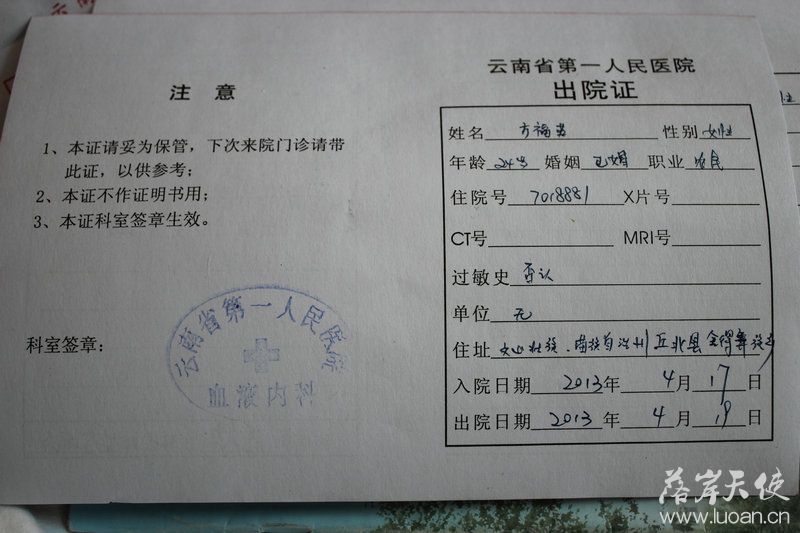 注 意
1、本证请妥为保管，下次来院门诊请带
此证，以供参考；
2、本证不作证明书用；
3、本证科室签章生效。
科室签章：
云南省第一人民医院
血液内科
云南省第一人民医院
出院证
姓名 方福 性别 女性
年龄 24岁 婚姻 已婚 职业 农民
住院号 7018881 X片号
CT号 MRI号
过敏史 否认
单位 无
住址 文山壮族、苗族自治州丘北县
入院日期 2013年 4月 17日
出院日期 2013年 4月 19日
落岸天使
www.luoan.cn